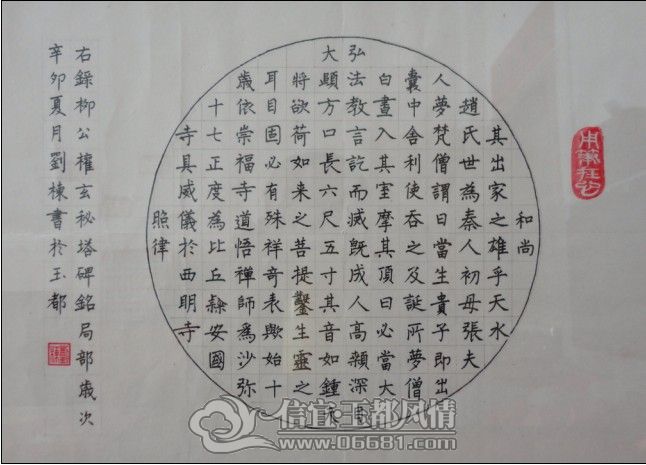 和尚
其出家之雄乎天水
趙氏世為秦人初母張夫
人夢梵僧謂曰當生貴子即出
囊中舍利使吞之及誕所夢僧
白晝入其室摩其頂曰必當大
弘法教言訖而滅既成人高顙深目
大頤方口長六尺五寸其音如鍾夫
將欲荷如来之菩提鑿生靈之
耳目固必有殊祥奇表歟始十
歲依崇福寺道悟禪師為沙弥
十七正度為比丘隸安國
寺具威儀於西明寺
照律
右錄柳公權玄秘塔碑銘局部歲次
辛卯夏月劉棟書於玉都
信宜玉都风情
www.06681.com